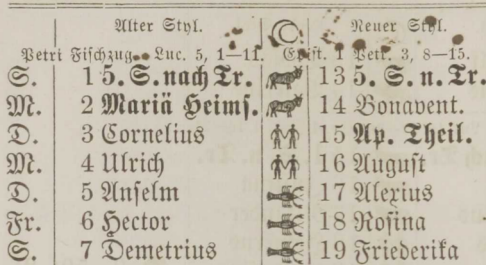 Alter Styl. Neuer Styl.
Petri Fischzug. Luc. 5, 1—11. Epist. 1 Petr. 3, 8—15.
S. 1 5. S. nach Tr. 13 5. S. n. Tr.
M. 2 Mariä Heims. 14 Bonavent.
D. 3 Cornelius 15 Ap. Theil.
M. 4 Ulrich 16 August
D. 5 Anselm 17 Alexius
Fr. 6 Hector 18 Rosina
S. 7 Demetrius 19 Friederika